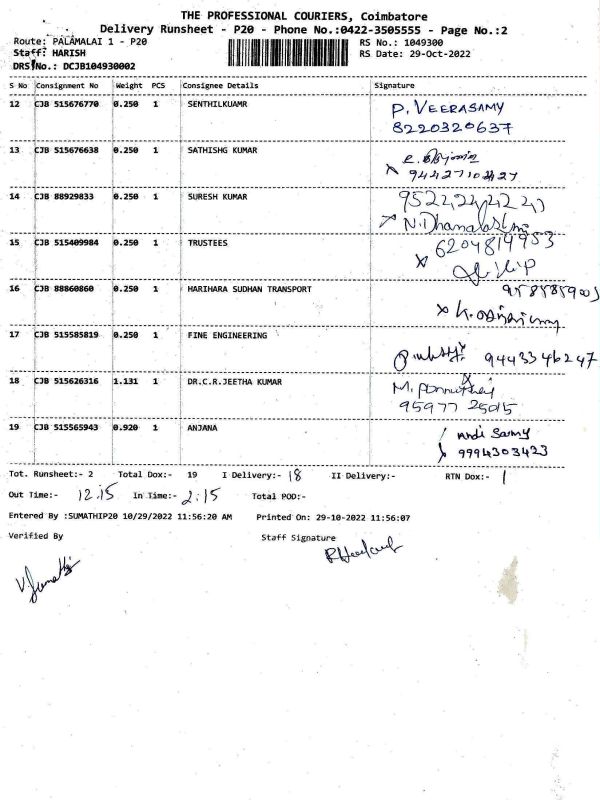 THE PROFESSIONAL COURIERS, Coimbatore
Delivery Runsheet - P20 - Phone No.:0422-3505555 - Page No.:2
Route: PALAMALAI 1 - P20
RS No.: 1049300
Staff: HARISH
RS Date: 29-Oct-2022
DRS No.: DCJB104930002
S No Consignment No Weight PCS Consignee Details Signature
12 CJB 515676770 0.250 1 SENTHILKUAMR P. VEERASAMY
8220320637
13 CJB 515676638 0.250 1 SATHISHG KUMAR
14 CJB 88929833 0.250 1 SURESH KUMAR
N. Dhanalakshmi
15 CJB 515409984 0.250 1 TRUSTEES 6204819953
16 CJB 88860860 0.250 1 HARIHARA SUDHAN TRANSPORT
17 CJB 515585819 0.250 1 FINE ENGINEERING
9443346247
18 CJB 515626316 1.131 1 DR.C.R.JEETHA KUMAR
95977 25015
19 CJB 515565943 0.920 1 ANJANA
9994303423
Tot. Runsheet:- 2 Total Dox:- 19 I Delivery:- 18 II Delivery:- RTN Dox:- 1
Out Time:- 12.15 In Time:- 2:15 Total POD:-
Entered By :SUMATHIP20 10/29/2022 11:56:20 AM Printed On: 29-10-2022 11:56:07
Verified By Staff Signature